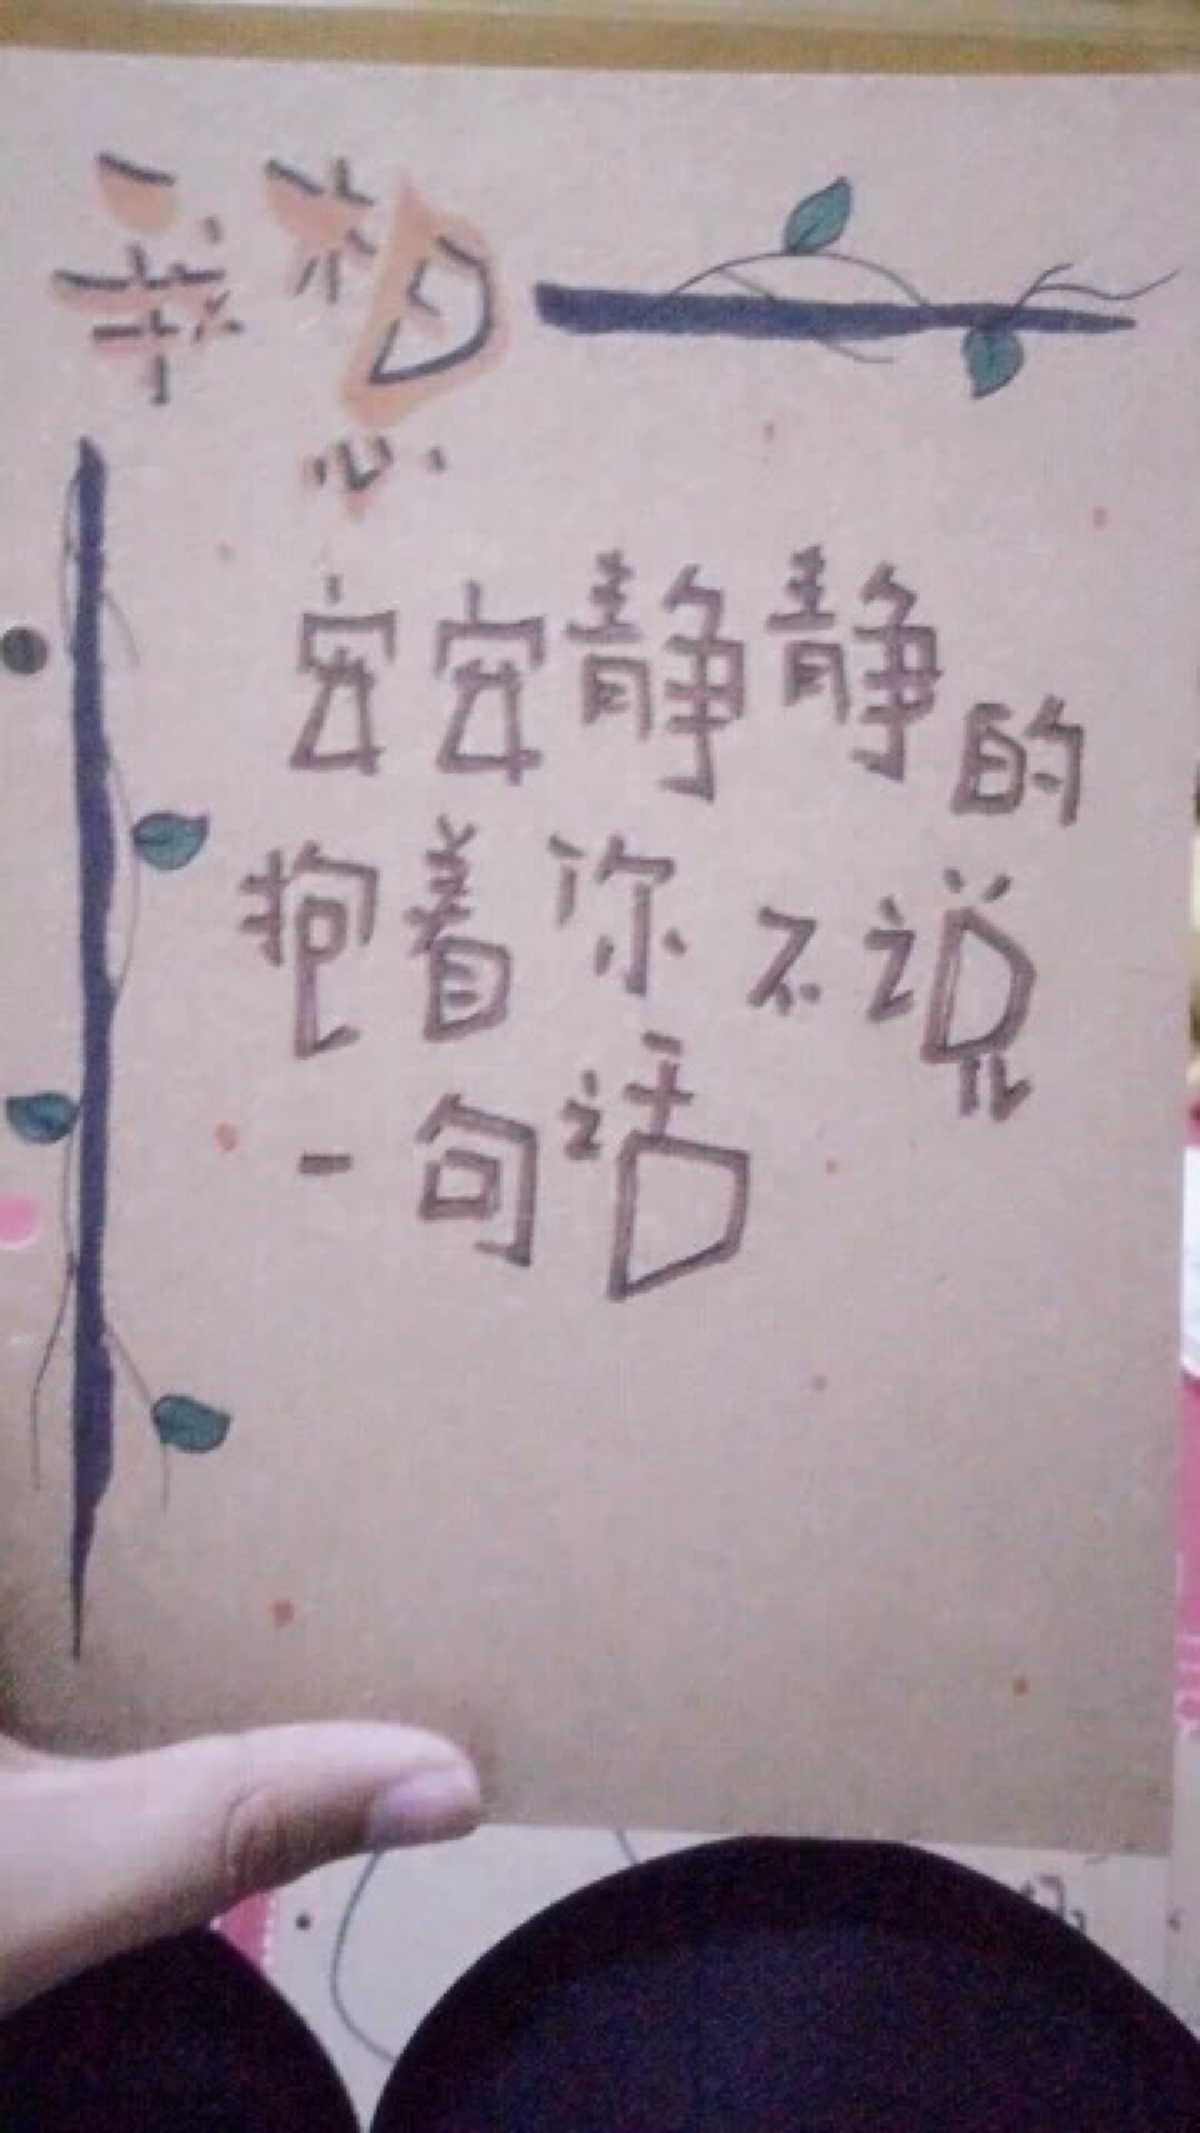 亲想
安安静静的
抱着你不说
一句话